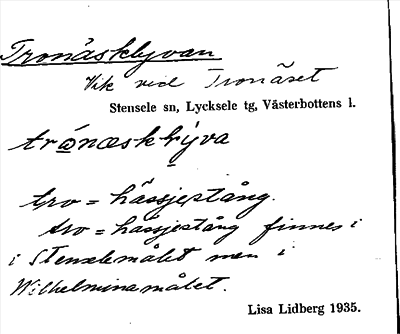 Tronäsklyvan
Vik vid Tronäset
Stensele sn, Lycksele tg, Västerbottens l.
trónæsklýva
tro = hässjestång.
tro = hässjestång finnes i
i Stenselemålet men i
Wilhelminamålet.
Lisa Lidberg 1935.